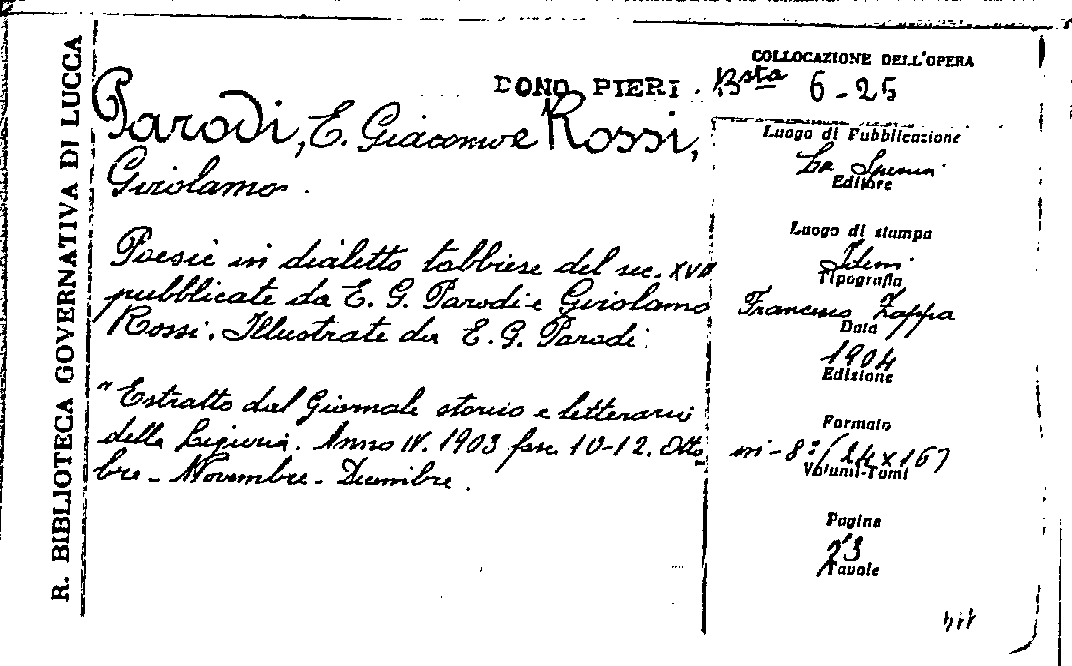 R. BIBLIOTECA GOVERNATIVA DI LUCCA
DONO PIERI. Bsta
COLLOCAZIONE DELL'OPERA
6-25
Parodi, E. Giacomo e Rossi,
Girolamo.
Poesie in dialetto tabbiese del sec. XVII
pubblicate da E. G. Parodi e Girolamo
Rossi. Illustrate da E. G. Parodi.
"Estratto dal Giornale storico e letterario
della Liguria. Anno IV. 1903 fasc. 10-12. Otto
bre - Novembre - Dicembre.
Luogo di Pubblicazione
La Spezia
Editore
Luogo di stampa
Idem
Tipografia
Francesco Zappa
Data
1904
Edizione
Formato
in-8° (24x16)
Volumi-Tomi
Pagine
23
Tavole